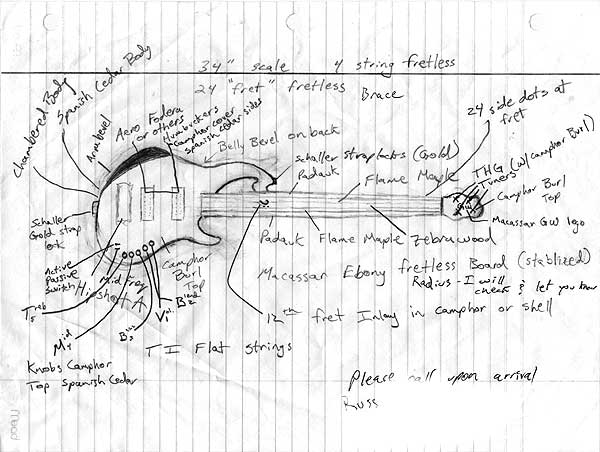 34" scale 4 string fretless
24 "fret" fretless
Brace
24 side dots at
fret
Chambered Body
Spanish Cedar Body
Arm bevel
Aero Fodera
or others
humbuckers
Camphor cover
Spanish cedar sides
Belly Bevel on back
Schaller straplocks (Gold)
Padauk
Flame Maple
THG (w/camphor Burl)
Tuners
Camphor Burl
Top
Macassar GW logo
Schaller
Gold strap
lock
Padauk Flame Maple Zebrawood
Macassar Ebony fretless Board (stablized)
Radius - I will
check & let you know
12th fret Inlay in camphor or shell
Active
Passive
Switch
Mid freq
Hipshot A
Camphor
Burl
Top
Treb
5
Mid
4
Bass
3
Vol
1
Blend
2
TI Flat strings
Knobs Camphor
Top Spanish Cedar
Please call upon arrival
Russ